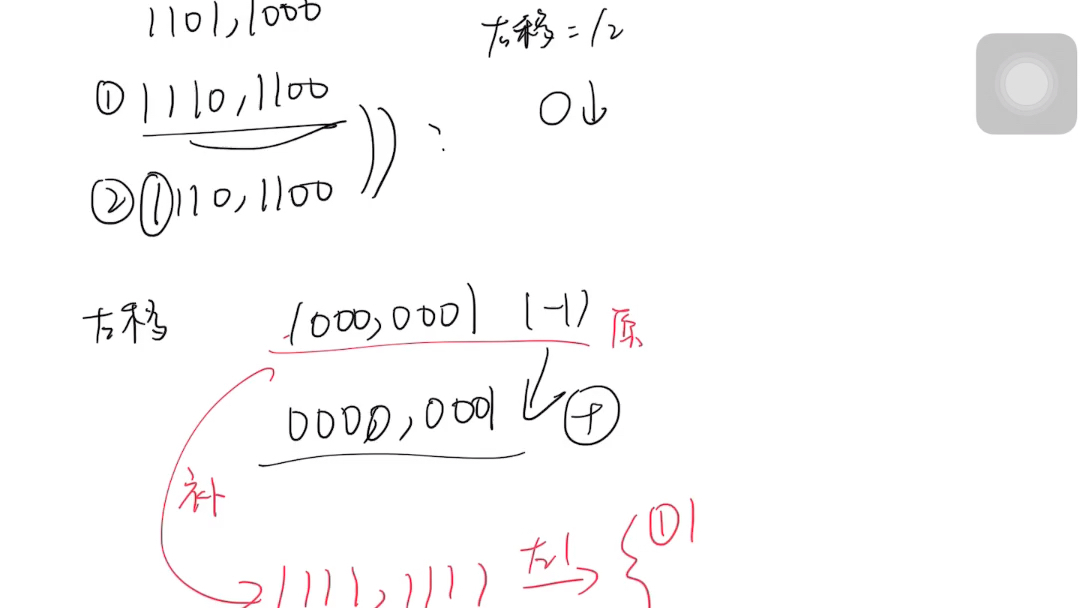 1101,1000
右移=/2
① 1110,1100
0↓
② ①110,1100
右移
1000,0001 (-1) 原
0000,0001
+
补
1111,1111 右1 → { ①1